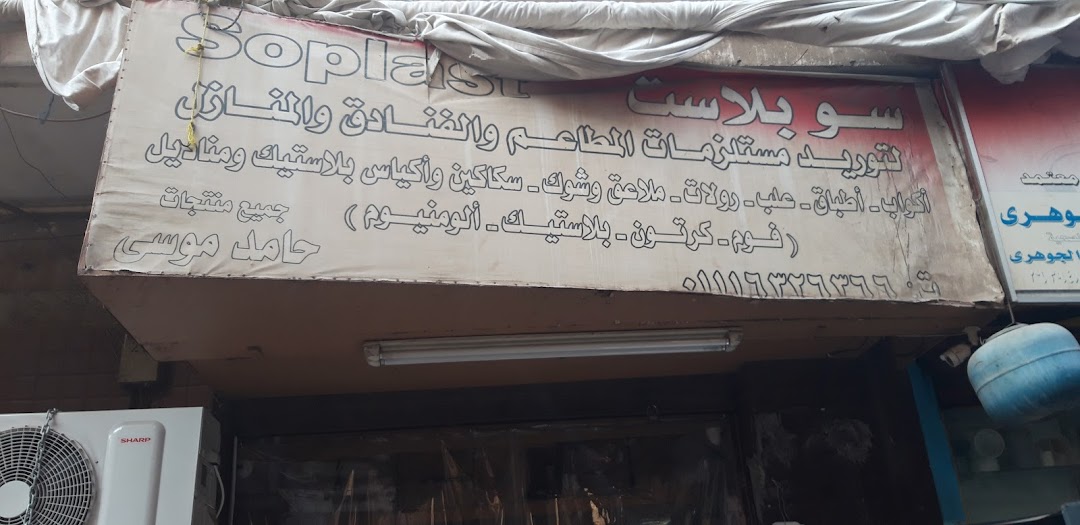 Soplast
سو بلاست
لتوريد مستلزمات المطاعم والفنادق والمنازل
أكواب - أطباق - علب - رولات - ملاعق وشوك - سكاكين وأكياس بلاستيك ومناديل
( فوم - كرتون - بلاستيك - ألومنيوم )
جميع منتجات
حامد موسى
ت: ٠١١١٦٣٢٦٣٦٦
معتمد
الجوهرى
SHARP